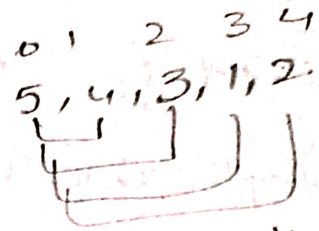 0 1 2 3 4
5, 4, 3, 1, 2